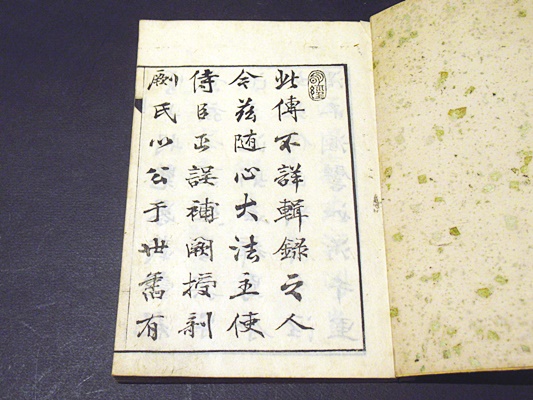 此傳不詳輯録之人
今茲随心大法主使
侍臣正誤補闕授剞
劂氏以公于世舊有